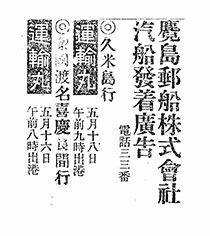 廣島郵船株式會社
汽船發着廣告
電話三三番
◎久米島行
運輸丸
五月十八日
午前九時出港
◎粟國渡名喜慶良間行
運輸丸
五月十六日
午前八時出港